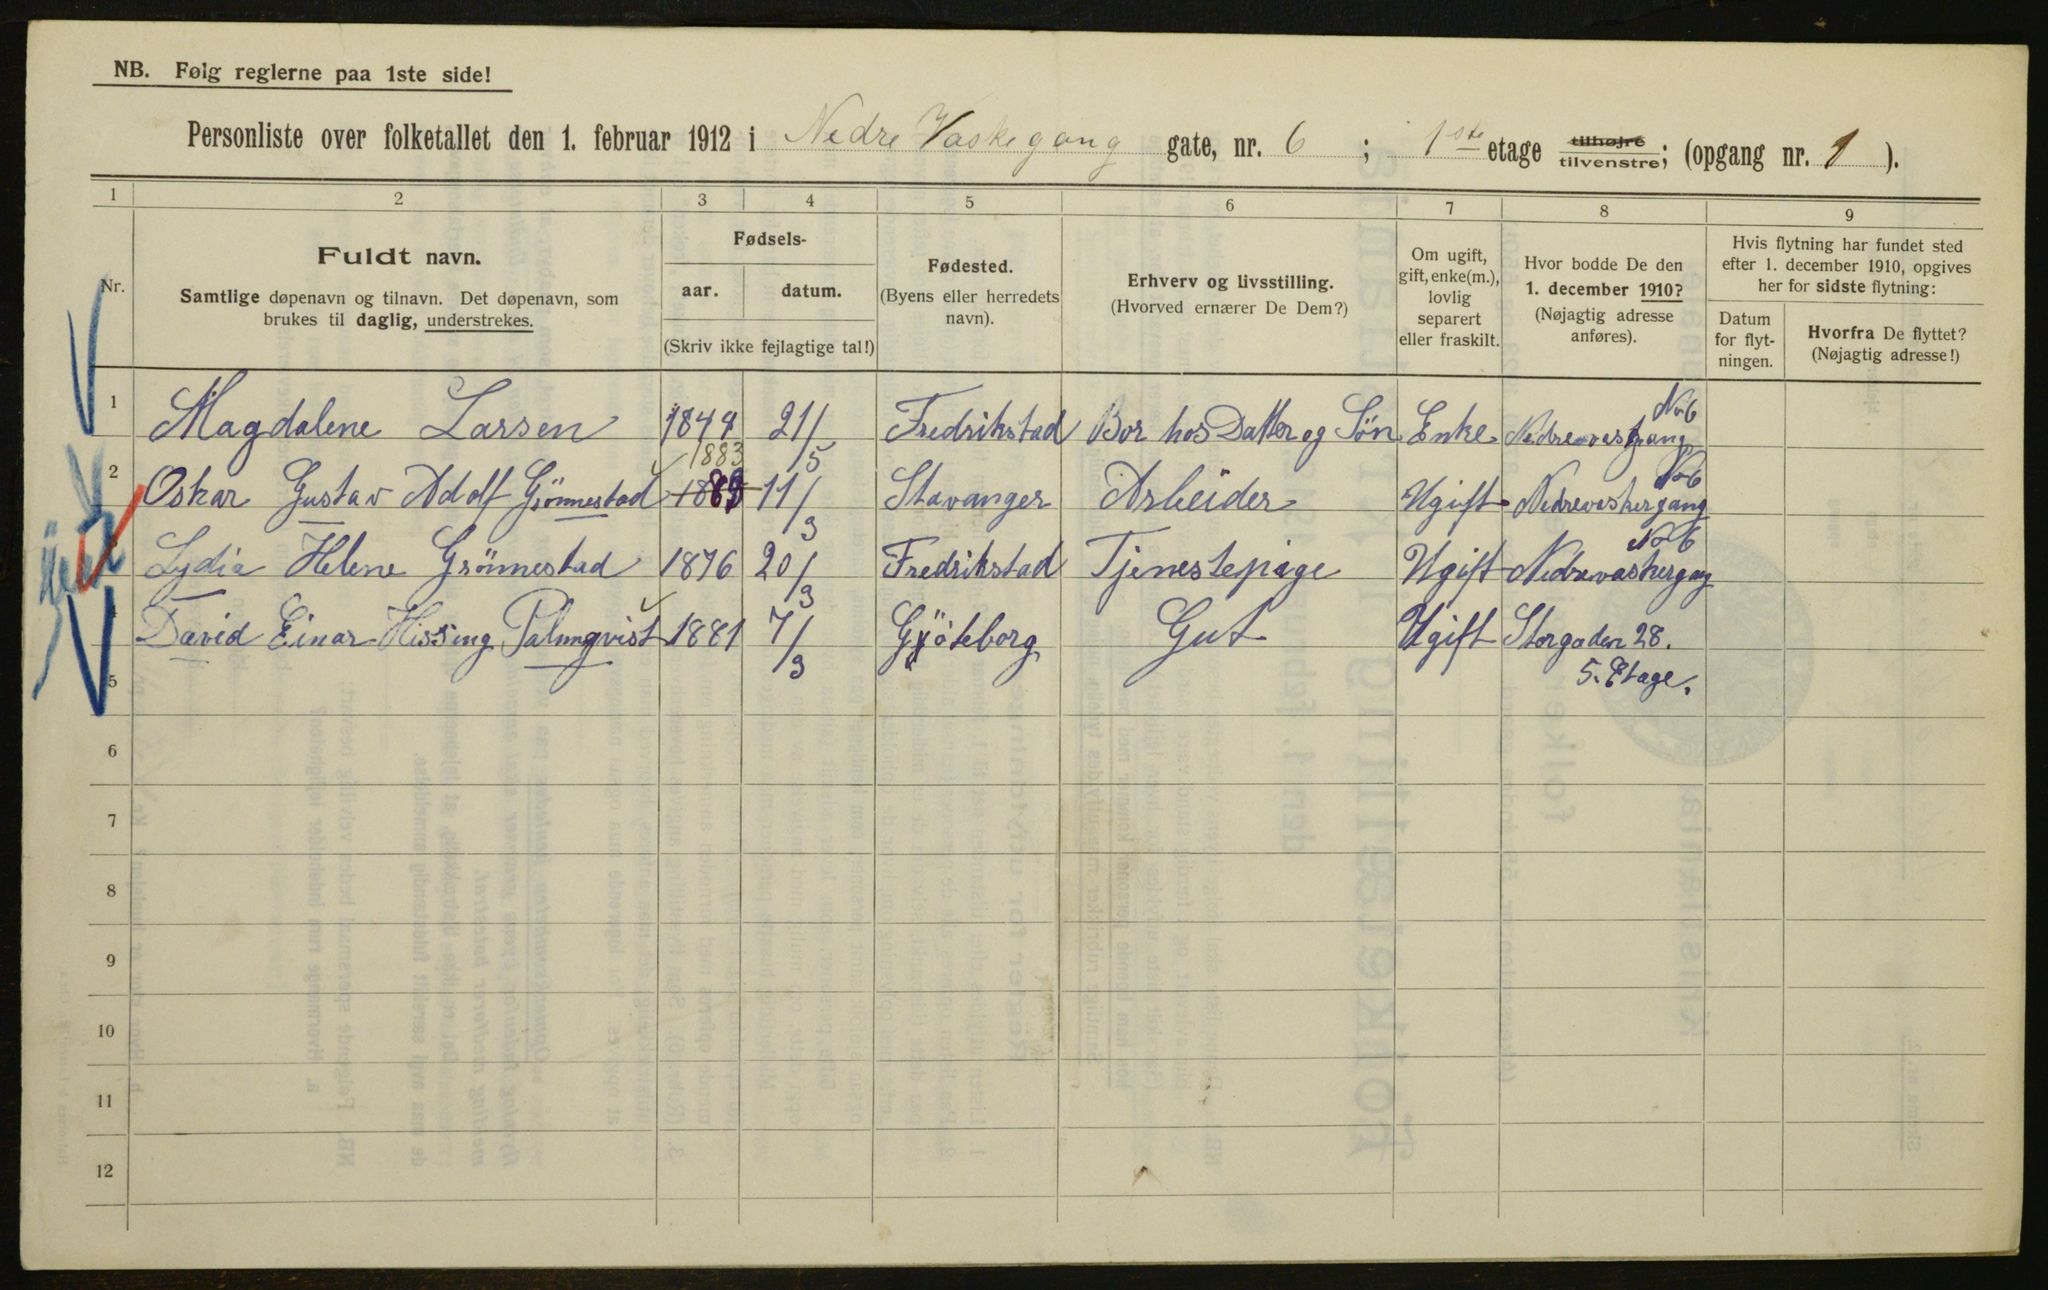 NB. Følg reglerne paa 1ste side!
Personliste over folketallet den 1. februar 1912 i Nedre Vaskegang gate, nr. 6 ; 1ste etage tilhøjre tilvenstre; (opgang nr. 1 ).
1 2 3 4 5 6 7 8 9
Nr.
Fuldt navn.
Samtlige døpenavn og tilnavn. Det døpenavn, som
brukes til daglig, understrekes.
Fødsels-
aar. datum.
(Skriv ikke fejlagtige tal!)
Fødested.
(Byens eller herredets
navn).
Erhverv og livsstilling.
(Hvorved ernærer De Dem?)
Om ugift,
gift, enke(m.),
lovlig
separert
eller fraskilt.
Hvor bodde De den
1. december 1910?
(Nøjagtig adresse
anføres).
Hvis flytning har fundet sted
efter 1. december 1910, opgives
her for sidste flytning:
Datum
for flyt-
ningen.
Hvorfra De flyttet?
(Nøjagtig adresse!)
1 Magdalene Larsen 1844 21/5 Fredrikstad Bor hos Datter og Søn Enke No 6
1883
2 Oskar Gustav Adolf Grönnestad 11/3 Stavanger Arbeider Ugift Nedrevaskergang No 6
3 Lydia Helene Grönnestad 1876 20/3 Fredrikstad Tjenestepige Ugift Nedrevaskergang No 6
4 David Einar Hissing Palmqvist 1881 7/3 Gjöteborg Gut Ugift Storgaden 28.
5. Etage.
5
6
7
8
9
10
11
12